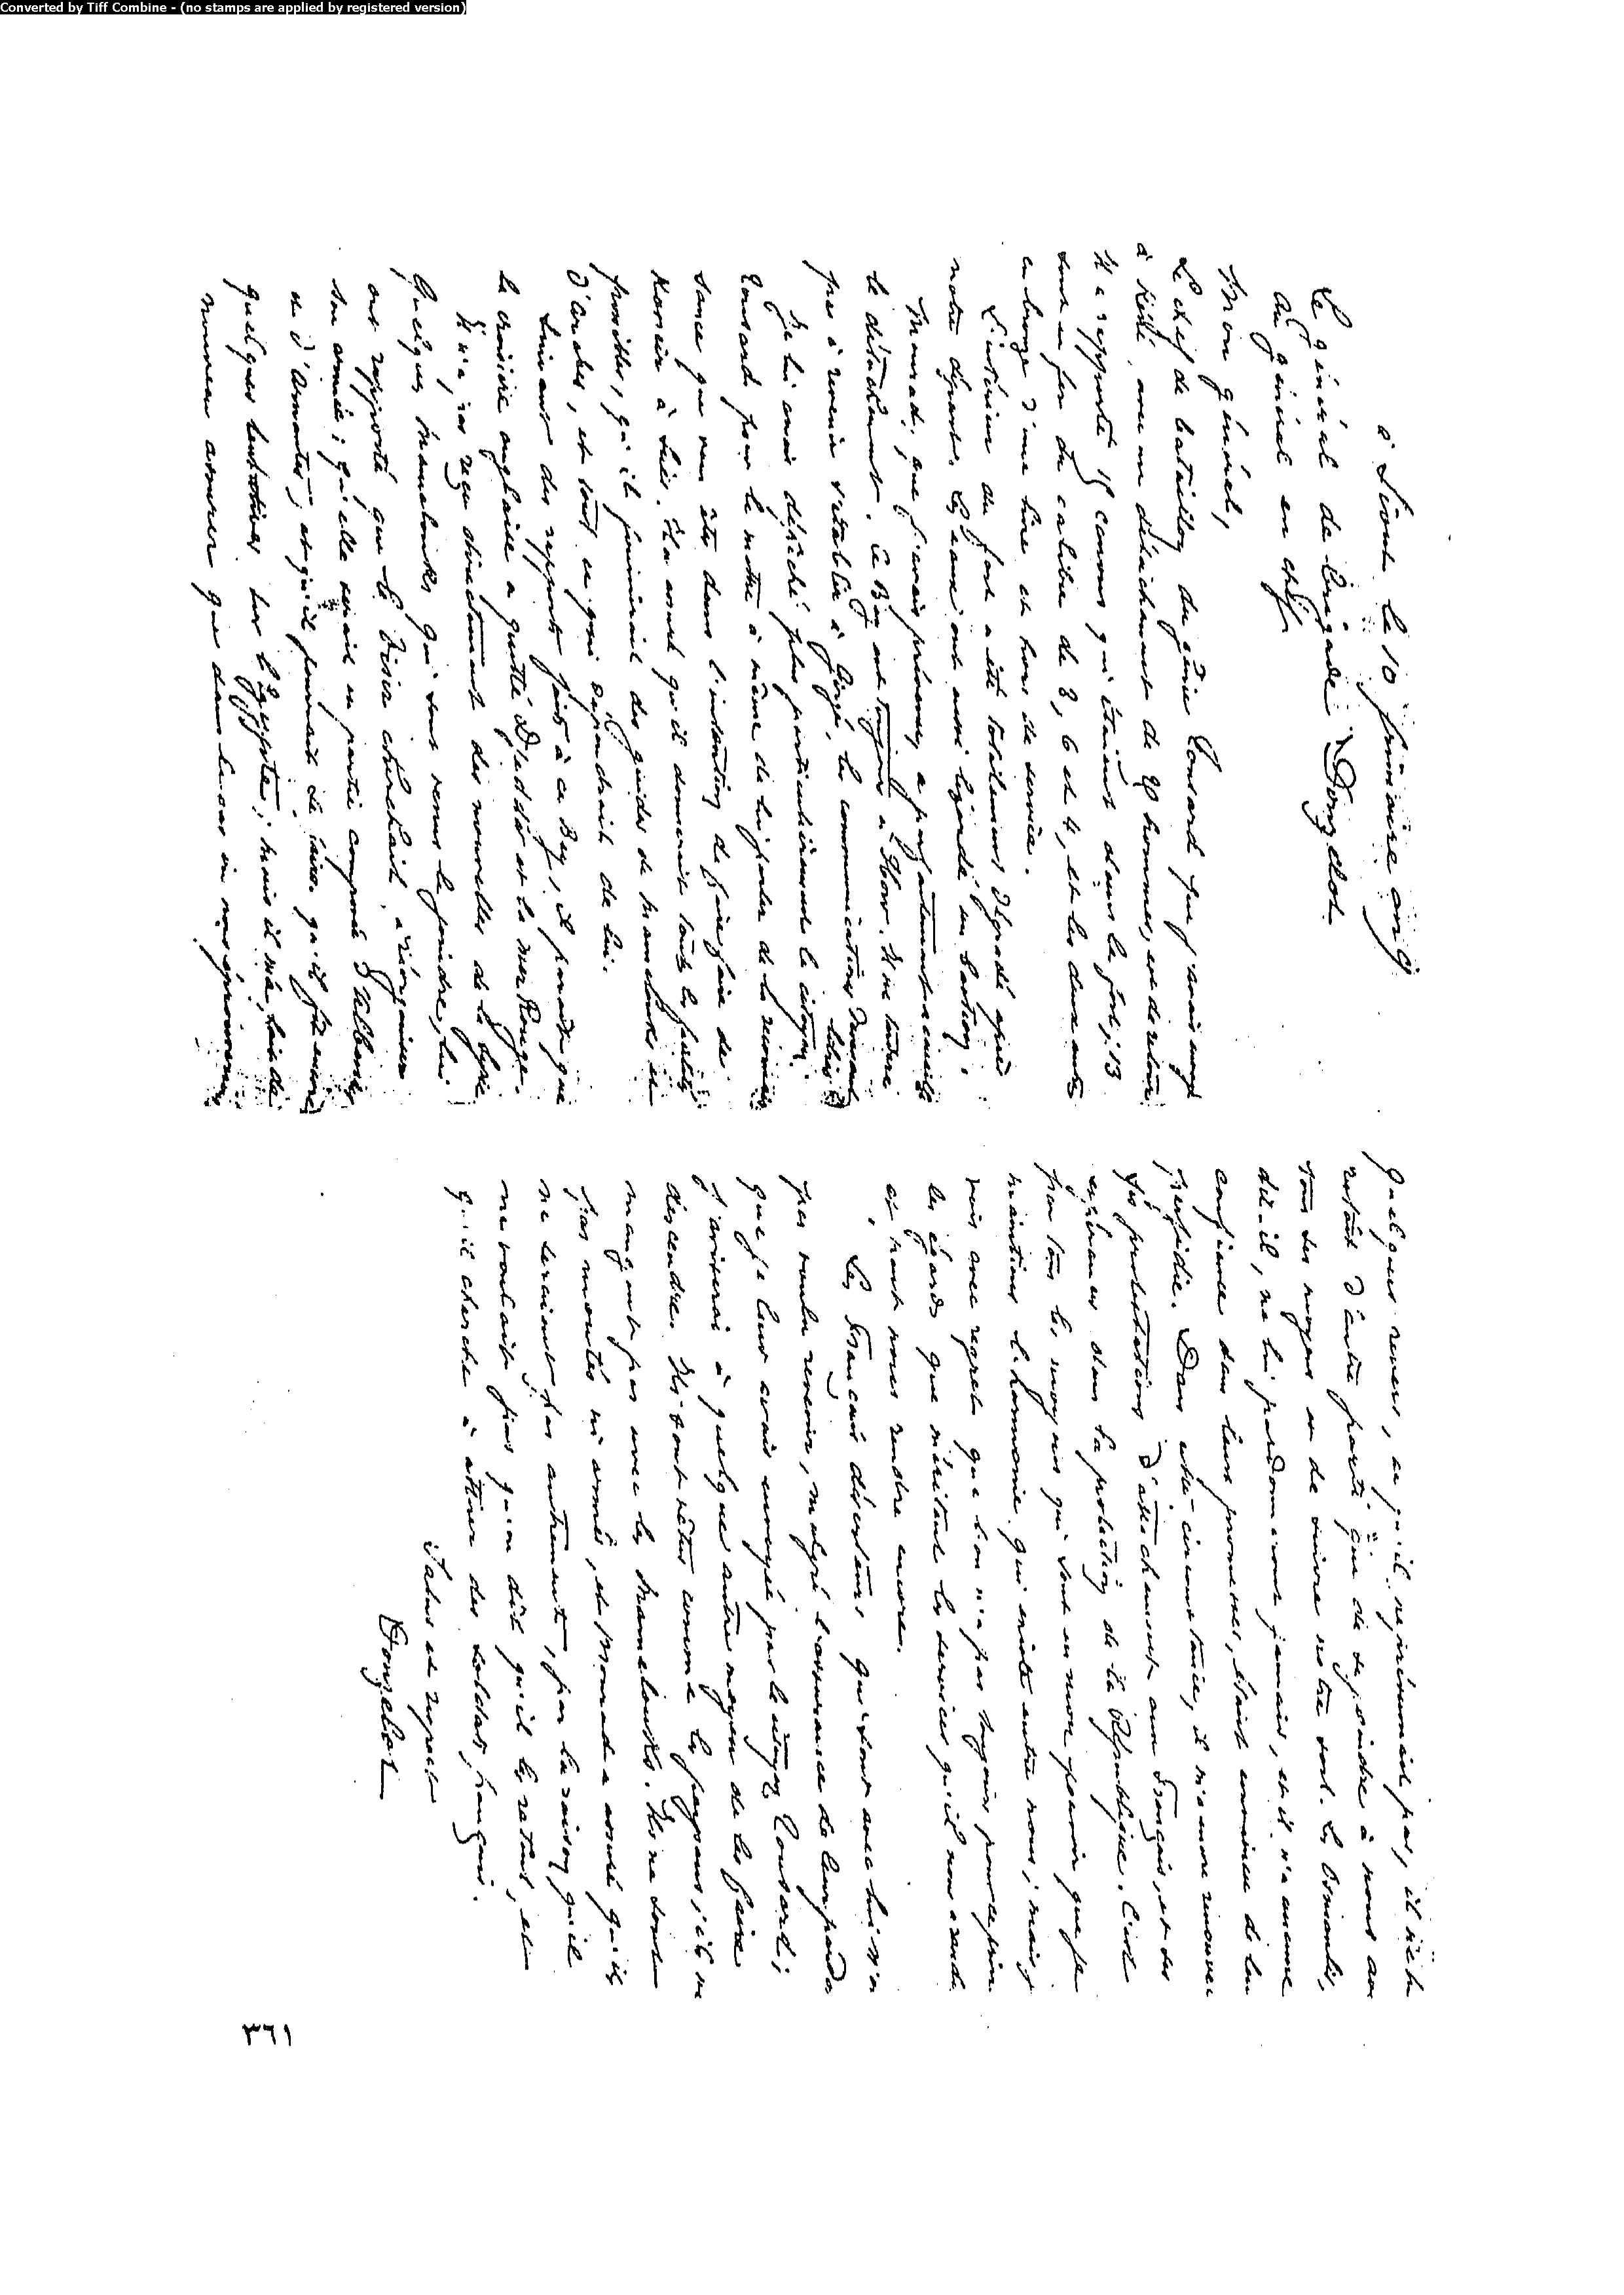 Converted by Tiff Combine - (no stamps are applied by registered version)
à Siout le 10 frimaire an 9
Le général de brigade Donzelot
Au général en chef
Mon général,
Le chef de bataillon du génie Cousard que j'avais envoyé
à Kéné, avec un détachement de 20 hommes, est de retour
Il a rapporté 15 canons qui étaient dans le fort; 13
sont en fer du calibre de 8, 6 et 4, et les deux autres
en bronze d'une livre et hors de service.
L'intérieur du fort a été totalement dégradé après
notre départ. Les eaux ont aussi lézardé un bastion.
Mourad, que j'avais prévenu, a parfaitement accueilli
le détachement. Ce Bey est toujours à Hou. Il ne tardera
pas à revenir s'établir à Girgé, les communications
Je lui avais dépêché plus particulièrement le citoyen
Cousard pour le mettre à même de lui parler de la
sance que vous êtes dans l'intention de faire faire de
Kosseir à Suès. Il a assuré qu'il donnerait toutes les facilités
possibles, qu'il fournirait des guides de mamelouks et
d'arabes, et tout ce qui dépendrait de lui.
Suivant des rapports faits à ce Bey, il paraît que
la croisière anglaise a quitté Djeddâ et la mer Rouge.
Il n'a pas reçu directement des nouvelles de la Syrie
Quelques mamelouks qui sont venus le joindre, lui
ont rapporté que le Visir cherchait à réorganiser
son armée; qu'elle serait en partie composée d'albanais
et d'arnautes; et qu'il pourrait se faire qu'il fît encore
quelques tentatives sur l'Égypte; mais il m'a
nouveau assurer que dans le cas où nous éprouverions
quelques revers, ce qu'il ne présumait pas, il ne lui
restât d'autre parti que de se joindre à nous avec
tous ses moyens et de suivre notre sort. Les Osmanlis,
dit-il, ne lui pardonneront jamais, et il n'a aucune
confiance dans leurs promesses, étant convaincu de leur
perfidie. Dans cette circonstance, il m'a encore renouvelé
ses protestations d'attachement aux Français, et ses
espérances dans la protection de la République. C'est
par tous les moyens qui sont en mon pouvoir que je
maintiens l'harmonie qui existe entre nous; mais je
vois avec regret que l'on n'a pas toujours pour ce prince
les égards que méritent les services qu'il nous a rendu
et peut nous rendre encore.
Les Français déserteurs qui sont avec lui n'ont
pas voulu revenir, malgré l'assurance de leur pardon
que je leur avais envoyé par le citoyen Cousard;
j'aviserai à quelque autre moyen de les faire
descendre. Ils sont vêtus comme les paysans; ils ne
mangent pas avec les Mamelouks. Ils ne sont
pas montés ni armés, et Mourad a assuré qu'ils
ne seraient pas autrement, par la raison qu'il
ne voulait pas qu'on dit qu'il les retint, et
qu'il cherche à attirer des soldats français.
Salut et respect
Donzelot
٣٦١